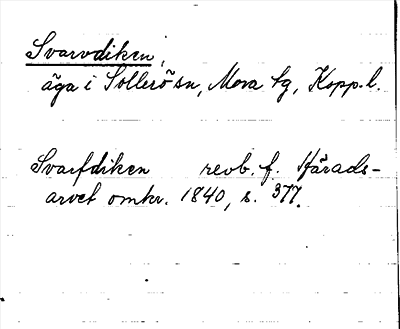 Svarvdiken,
äga i Sollerö sn, Mora tg, Kopp. l.
Svarfdiken revb. f. Härads-
arvet omkr. 1840, s. 377.